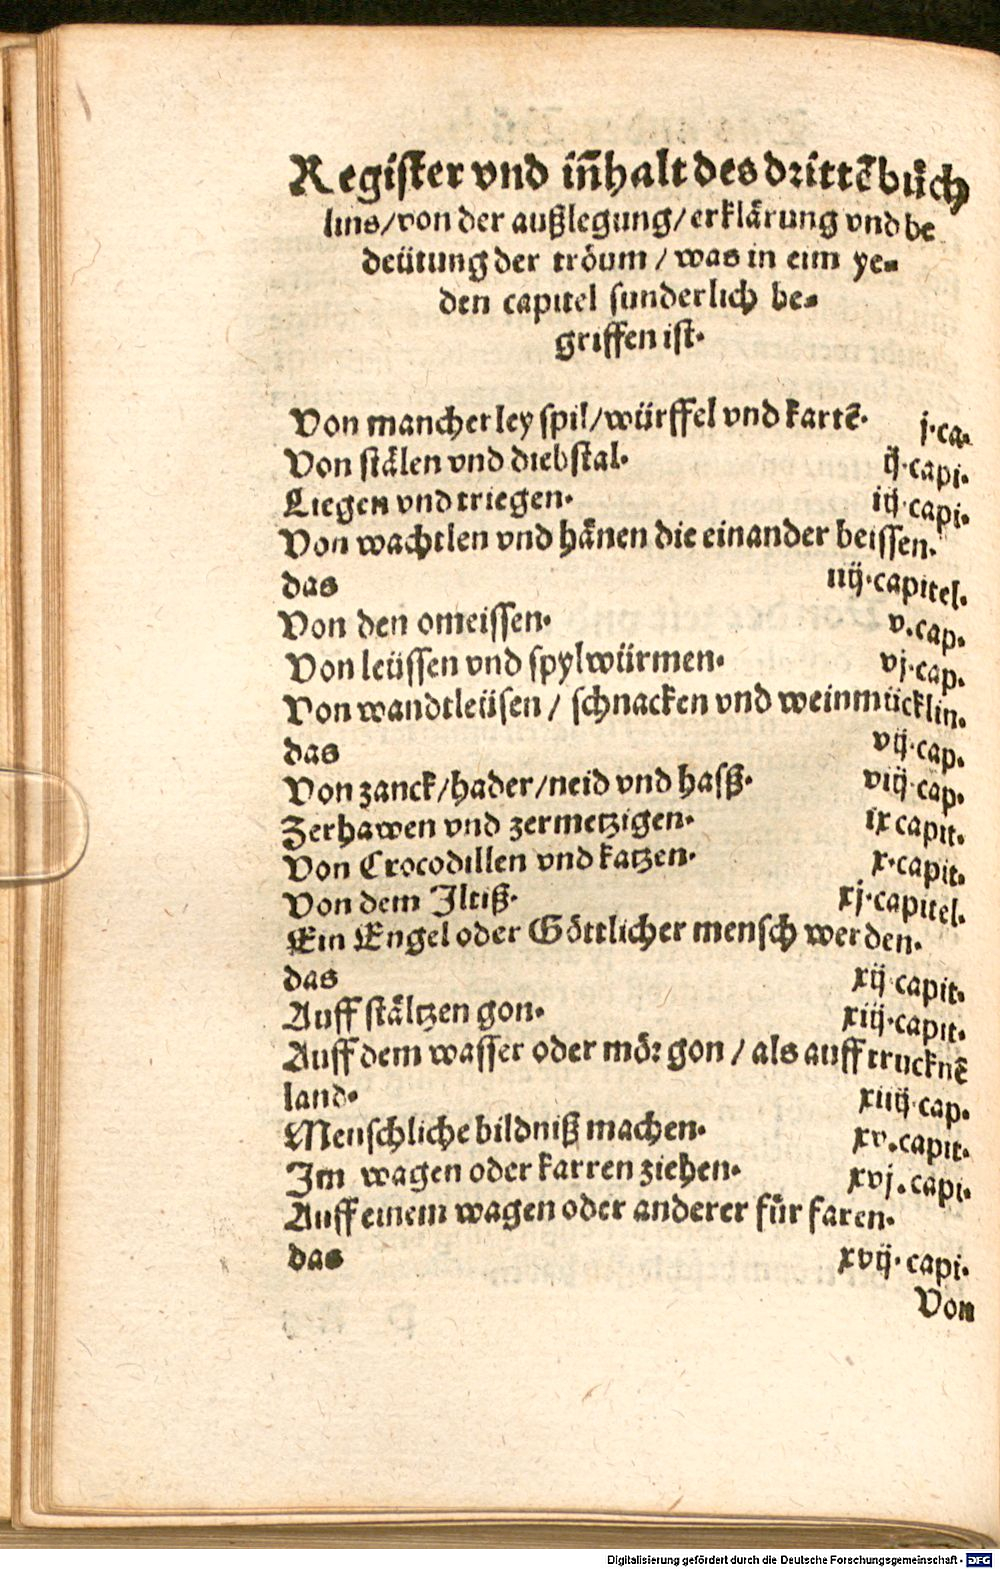 Register vnd in̄halt des drittẽ bůch
lins/von der außlegung/erklärung vnd be
deütung der tröum/was in eim ye-
den capitel sunderlich be-
griffen ist.
Von mancherley spil/würffel vnd kartẽ. j.ca.
Von stälen vnd diebstal. ij.capi.
Liegen vnd triegen. iij.capi.
Von wachtlen vnd hänen die einander beissen.
das iiij.capitel.
Von den omeissen. v.cap.
Von leüssen vnd spylwürmen. vj.cap.
Von wandtleüsen/schnacken vnd weinmücklin.
das vij.cap.
Von zanck/hader/neid vnd hasß. viij.cap.
Zerhawen vnd zermetzigen. ix capit.
Von Crocodillen vnd katzen. x.capit.
Von dem Iltiß. xj.capitel.
Ein Engel oder Göttlicher mensch werden.
das xij.capit.
Auff stältzen gon. xiij.capit.
Auff dem wasser oder mör gon/als auff trucknẽ
land. xiiij.cap.
Menschliche bildniß machen. xv.capit.
Im wagen oder karren ziehen. xvj.capi.
Auff einem wagen oder anderer fůr faren.
das xvij.capi.
Von
Digitalisierung gefördert durch die Deutsche Forschungsgemeinschaft - DFG